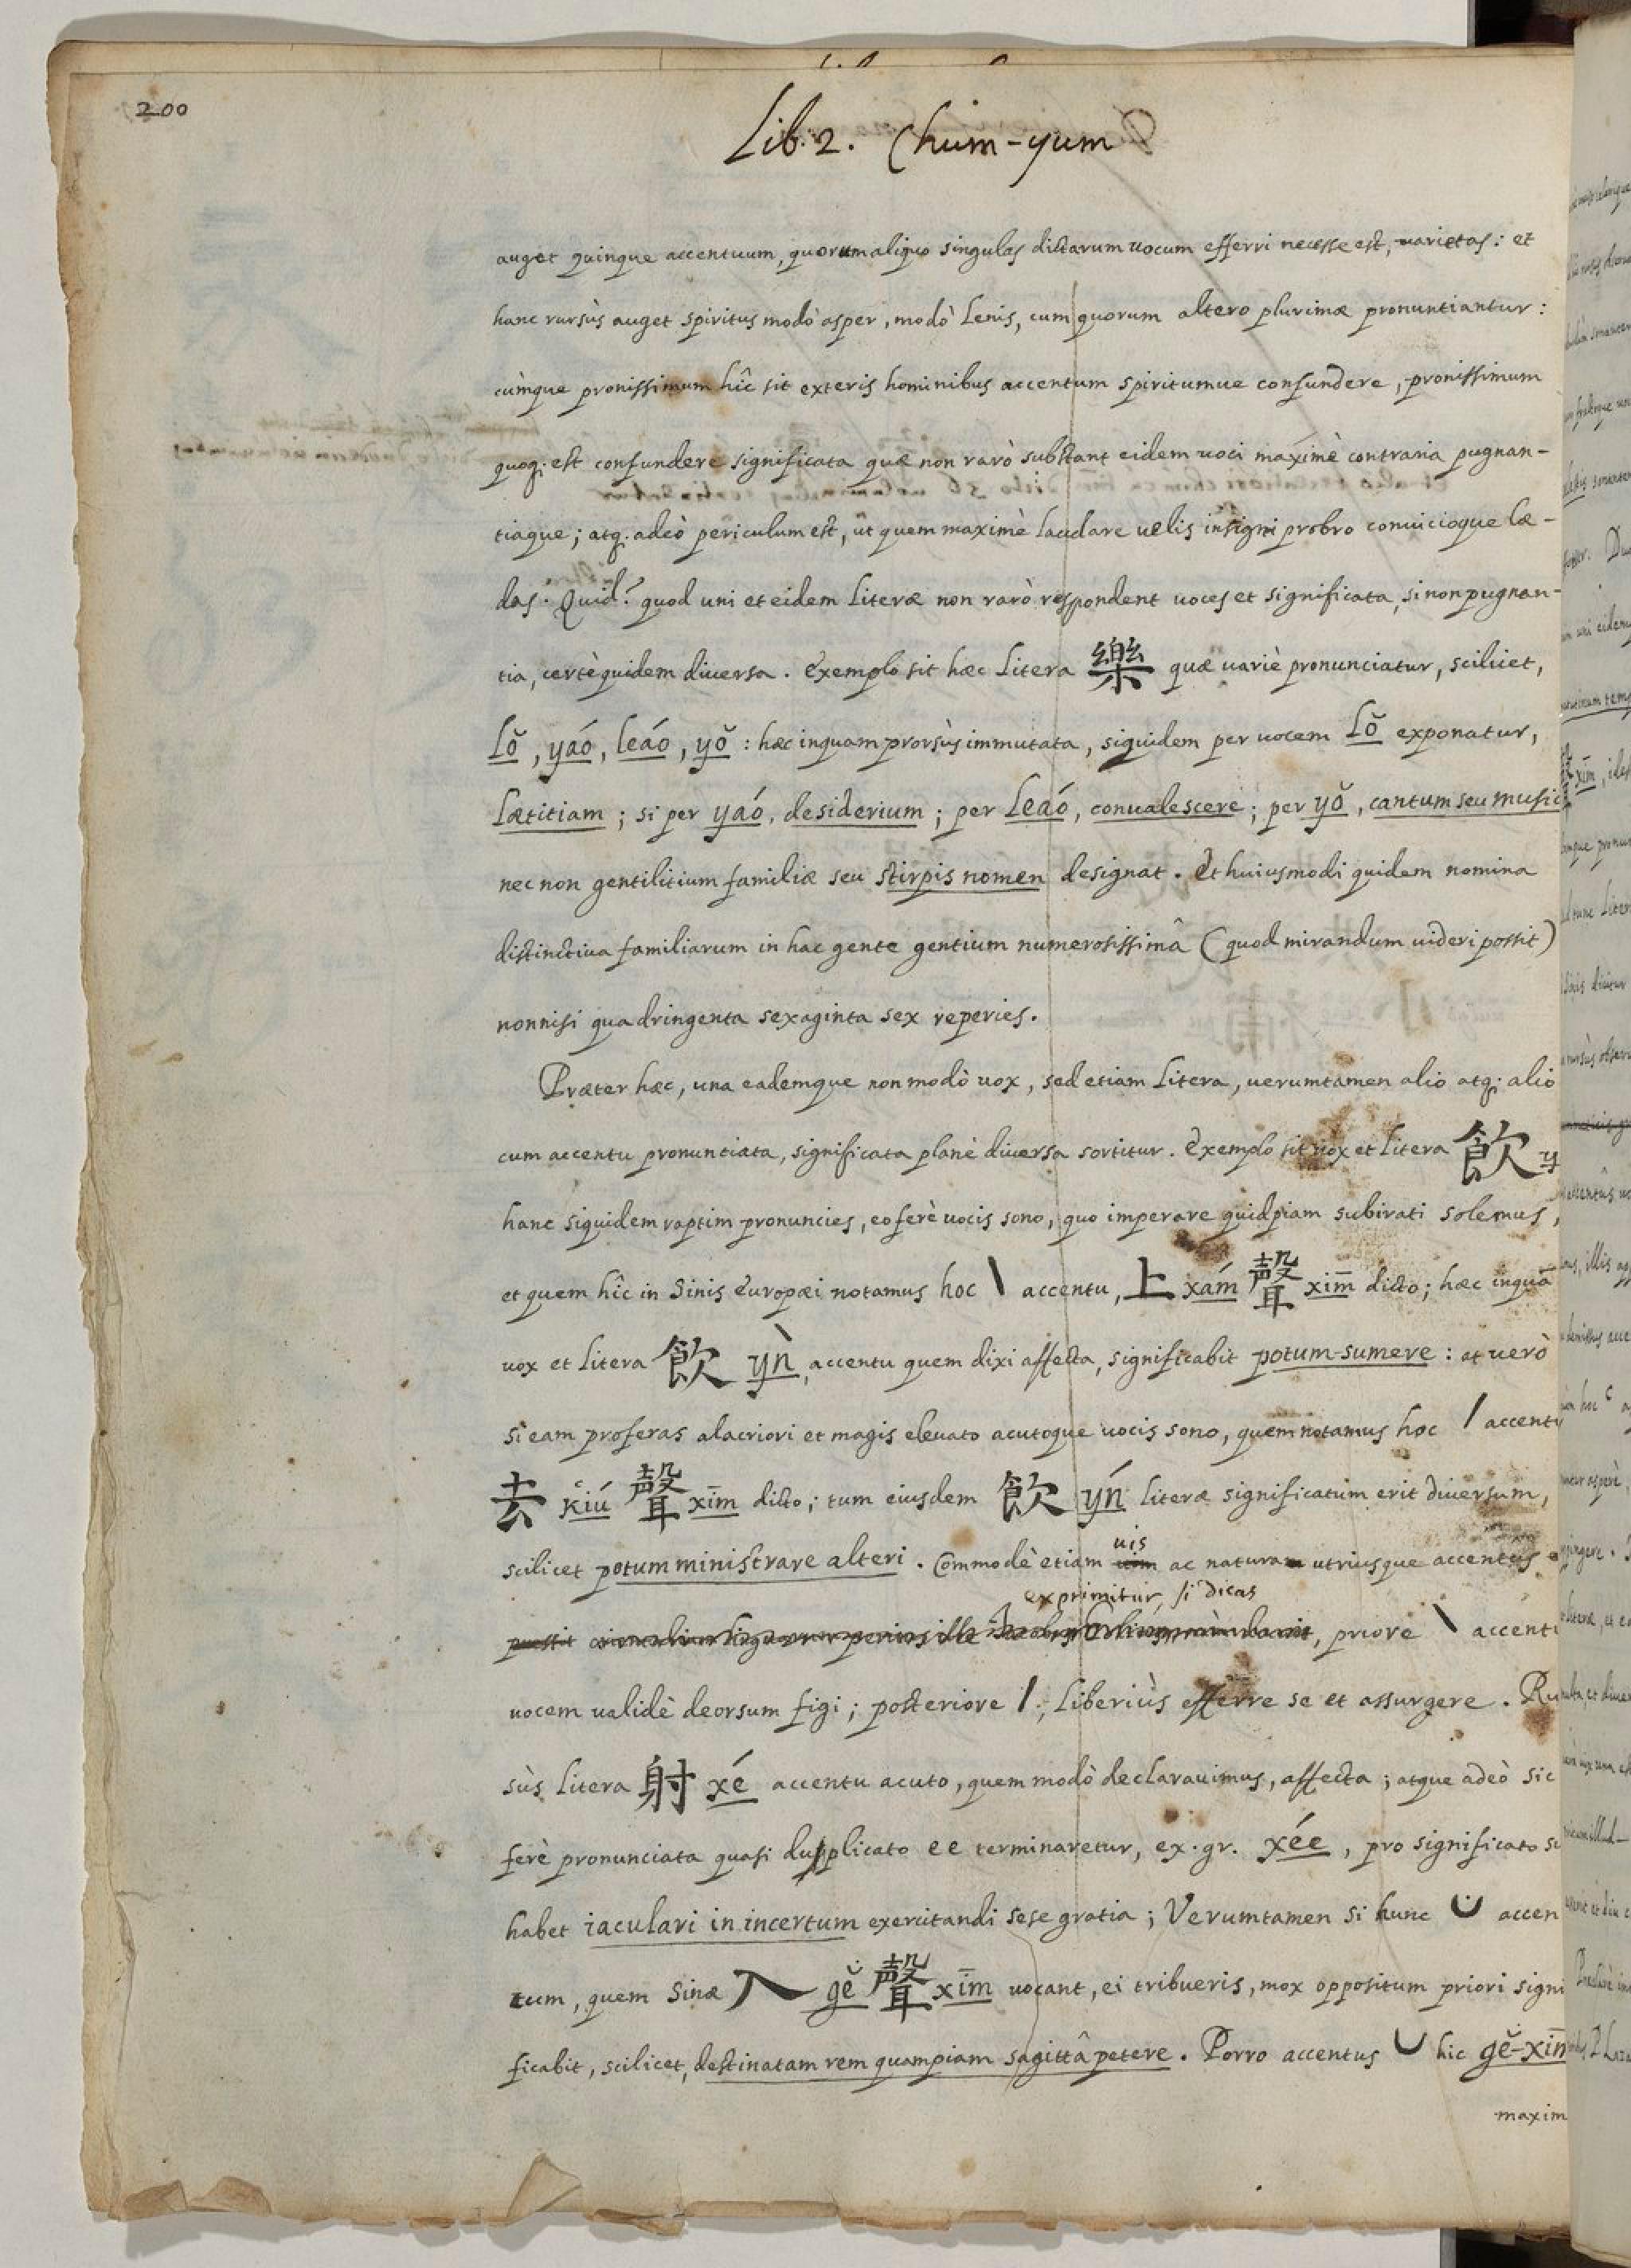 200
Lib. 2. Chum-yum
auget quinque accentuum, quorum aliquo singulas dictarum vocum efferri necesse est, varietas: et
hanc rursùs auget spiritus modò asper, modò lenis, cum quorum altero plurimæ pronuntiantur:
cùmque pronissimum hîc sit exteris hominibus accentum spiritumue confundere, pronissimum
quoq; est confundere significata quæ non rarò substant eidem uoci maximè contraria pugnan-
tiaque; atq; adeò periculum est, ut quem maximè laudare uelis insigni probro conuicioque læ-
das. Quid? quod uni et eidem literæ non rarò respondent uoces et significata, si non pugnan-
tia, certè quidem diuersa. Exemplo sit hæc litera 樂 quæ uariè pronunciatur, scilicet,
lŏ, yáo, leáo, yŏ: hæc inquam prorsùs immutata, siquidem per uocem lŏ exponatur,
lætitiam; si per yaó, desiderium; per leaó, conualescere; per yŏ, cantum seu music
nec non gentilitium familiæ seu stirpis nomen designat. Et huiusmodi quidem nomina
distinctiua familiarum in hac gente gentium numerosissimâ (quod mirandum uideri possit)
nonnisi quadringenta sexaginta sex reperies.
Præter hæc, una eademque non modò uox, sed etiam litera, uerumtamen alio atq; alio
cum accentu pronuntiata, significata planè diuersa sortitur. Exemplo sit uox et litera 飲 y
hanc siquidem raptim pronuncies, eo ferè uocis sono, quo imperare quidpiam subirati solemus,
et quem hîc in Sinis Europæi notamus hoc \ accentu, 上 xám 聲 xīm dicto; hæc inquã
uox et litera 飲 ỳn, accentu quem dixi affecta, significabit potum sumere: at uerò
si eam proferas alacriori et magis eleuato acutoque uocis sono, quem notamus hoc / accentu
去 ḱiú 聲 xīm dicto; tum eiusdem 飲 ýn literæ significatum erit diuersum,
scilicet potum ministrare alteri. Commodè etiam uis ac natura utriusque accentûs
exprimitur, si dicas
, priore \ accentu
uocem ualidè deorsum figi; posteriore /, liberiùs efferre se et assurgere. Ru
sùs litera 射 xé accentu acuto, quem modò declarauimus, affecta; atque adeò sic
ferè pronunciata quasi duplicato ee terminaretur, ex. gr. xée, pro significato su
habet iaculari in incertum exercitandi sese gratia; Verumtamen si hunc ˘ accen
tum, quem Sinæ 入 gĕ 聲 xīm uocant, ei tribueris, mox oppositum priori signi
ficabit, scilicet, destinatam rem quampiam sagittâ petere. Porro accentus ˘ hic gĕ-xīm
maxim